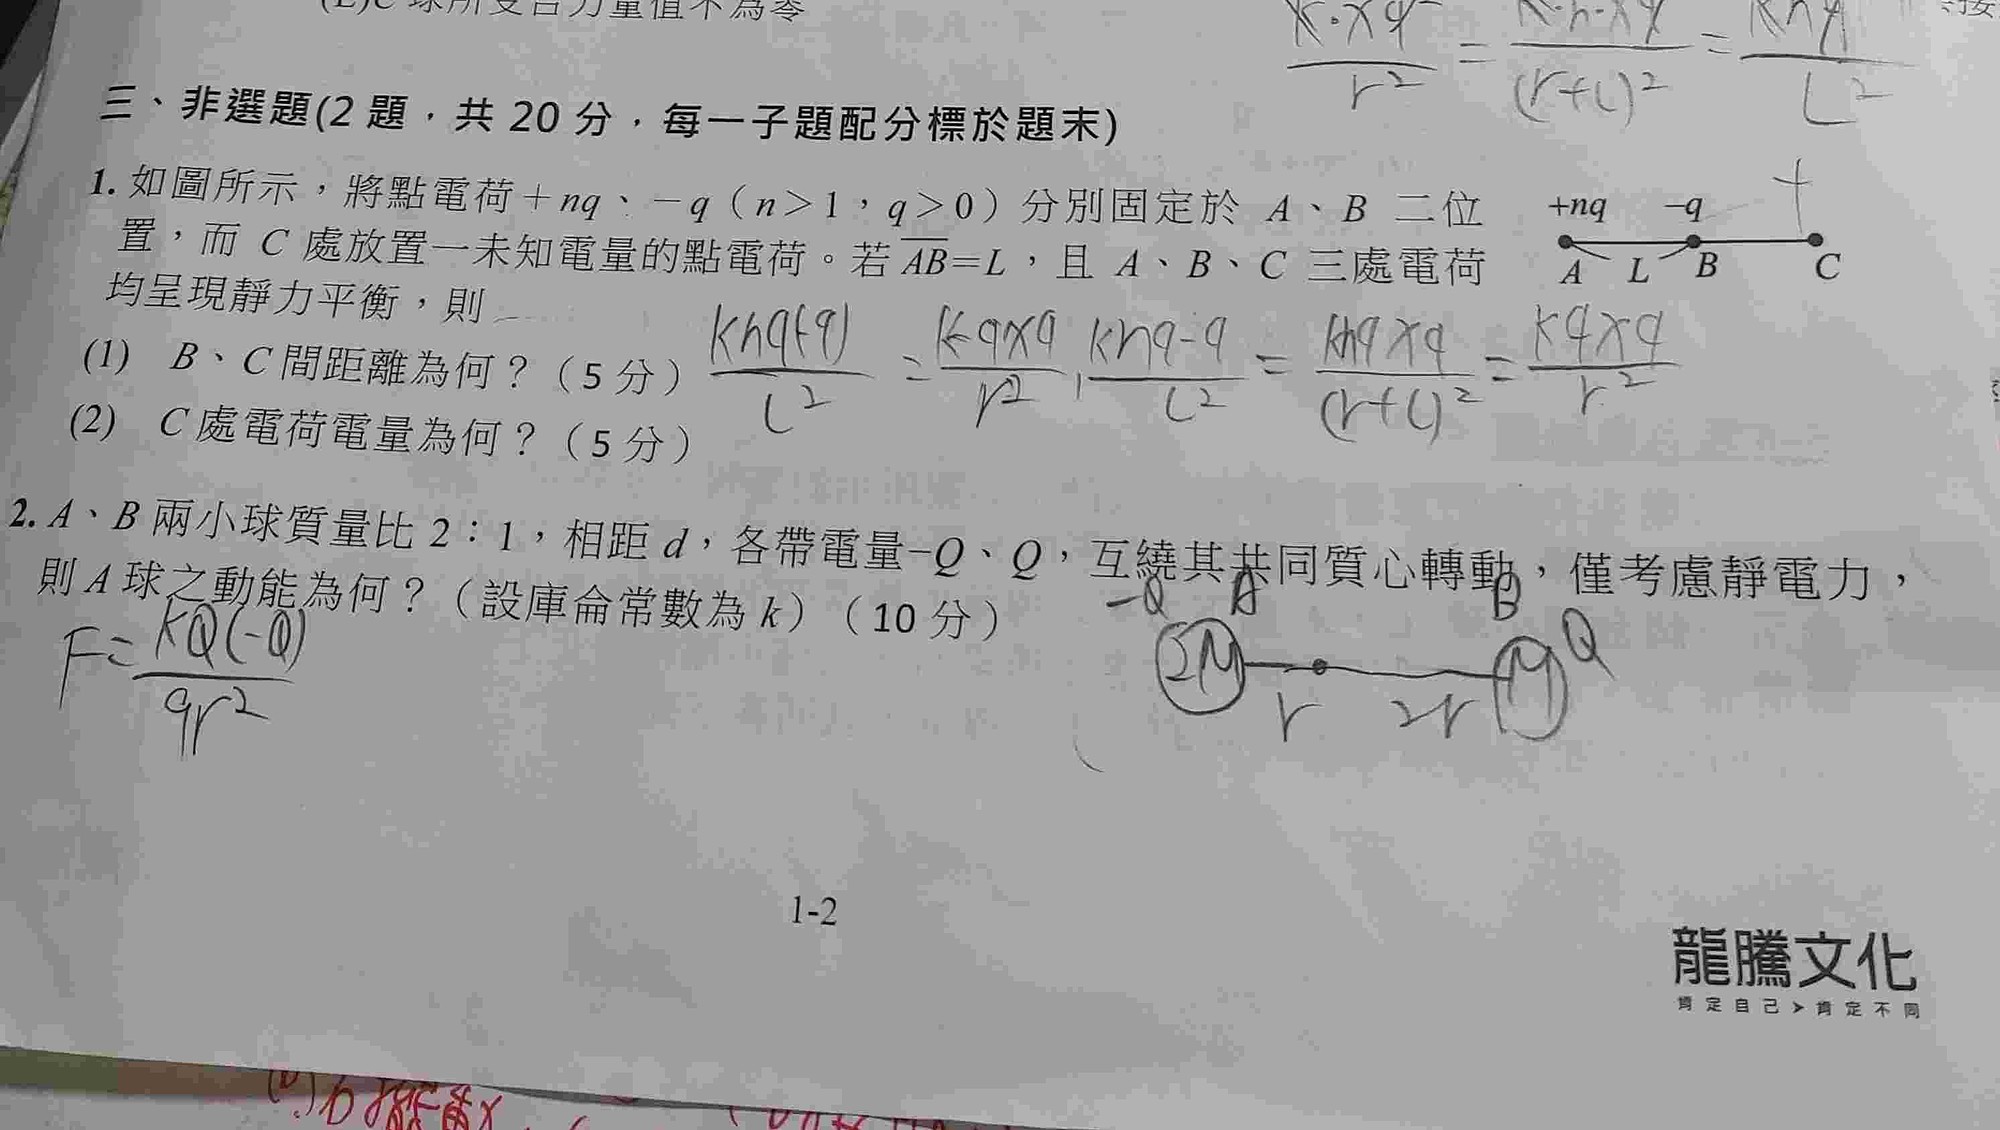 (E)C 球所受合力量值不為零
三、非選題(2 題，共 20 分，每一子題配分標於題末)
1. 如圖所示，將點電荷＋nq、－q（n＞1，q＞0）分別固定於 A、B 二位
置，而 C 處放置一未知電量的點電荷。若 AB=L，且 A、B、C 三處電荷
均呈現靜力平衡，則
+nq −q +
A L B C
(1) B、C 間距離為何？（5 分）
(2) C 處電荷電量為何？（5 分）
2. A、B 兩小球質量比 2：1，相距 d，各帶電量−Q、Q，互繞其共同質心轉動，僅考慮靜電力，
則 A 球之動能為何？（設庫侖常數為 k）（10 分）
F = kQ(-Q) / 9r²
-Q A B Q
2M M
r 2r
1-2
龍騰文化
肯定自己➤肯定不同